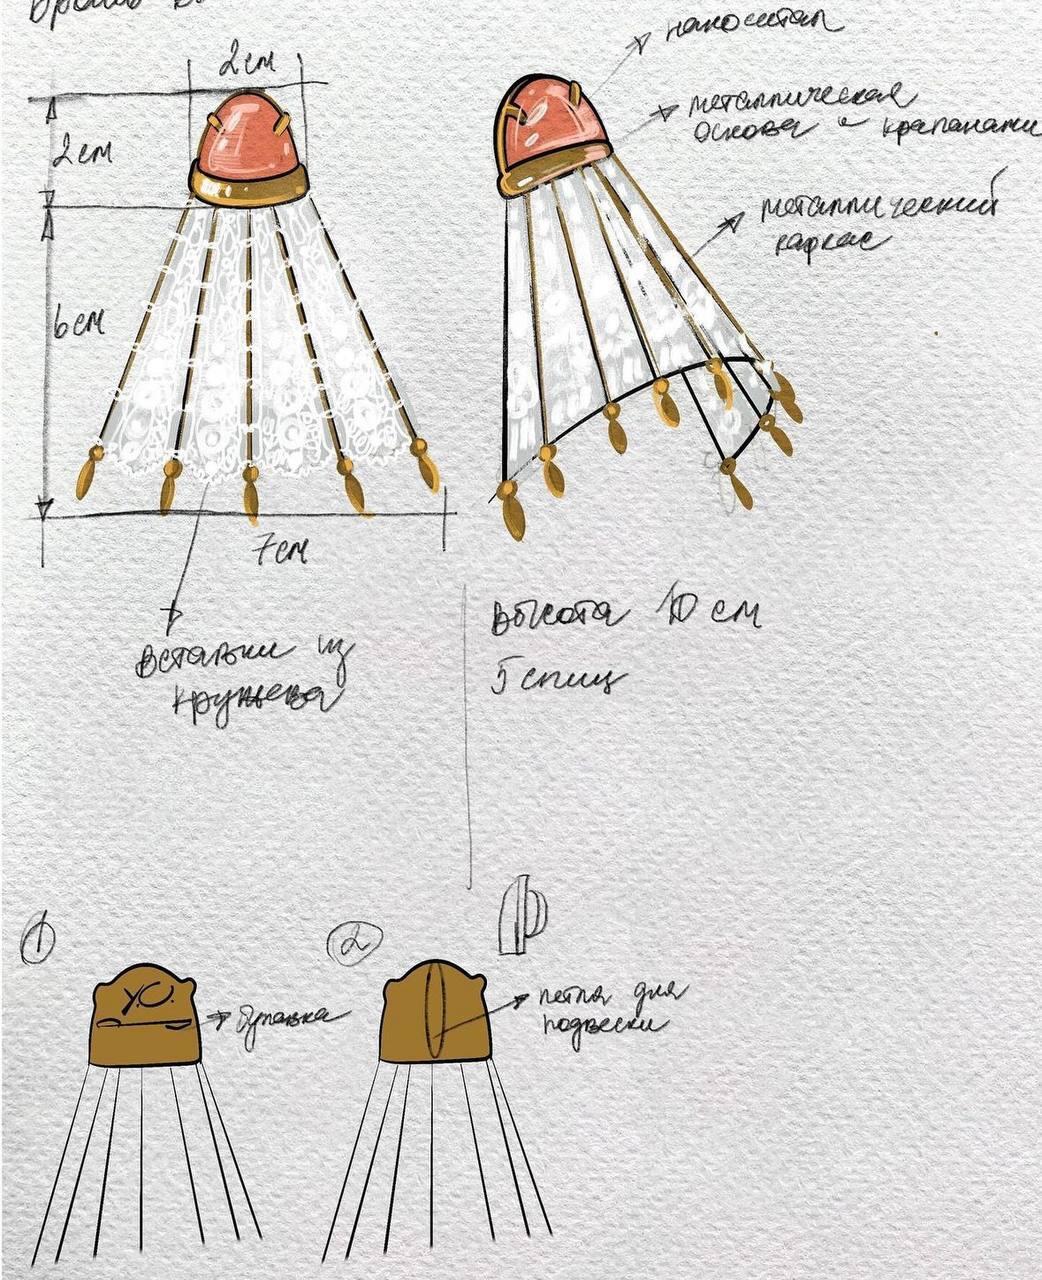 Брошь
2см
2см
6см
7см
вставки из
кружева
металлическая
основа с крапанами
металлический
каркас
высота 10 см
5 спиц
1
У.С.
булавка
2
петля для
подвески